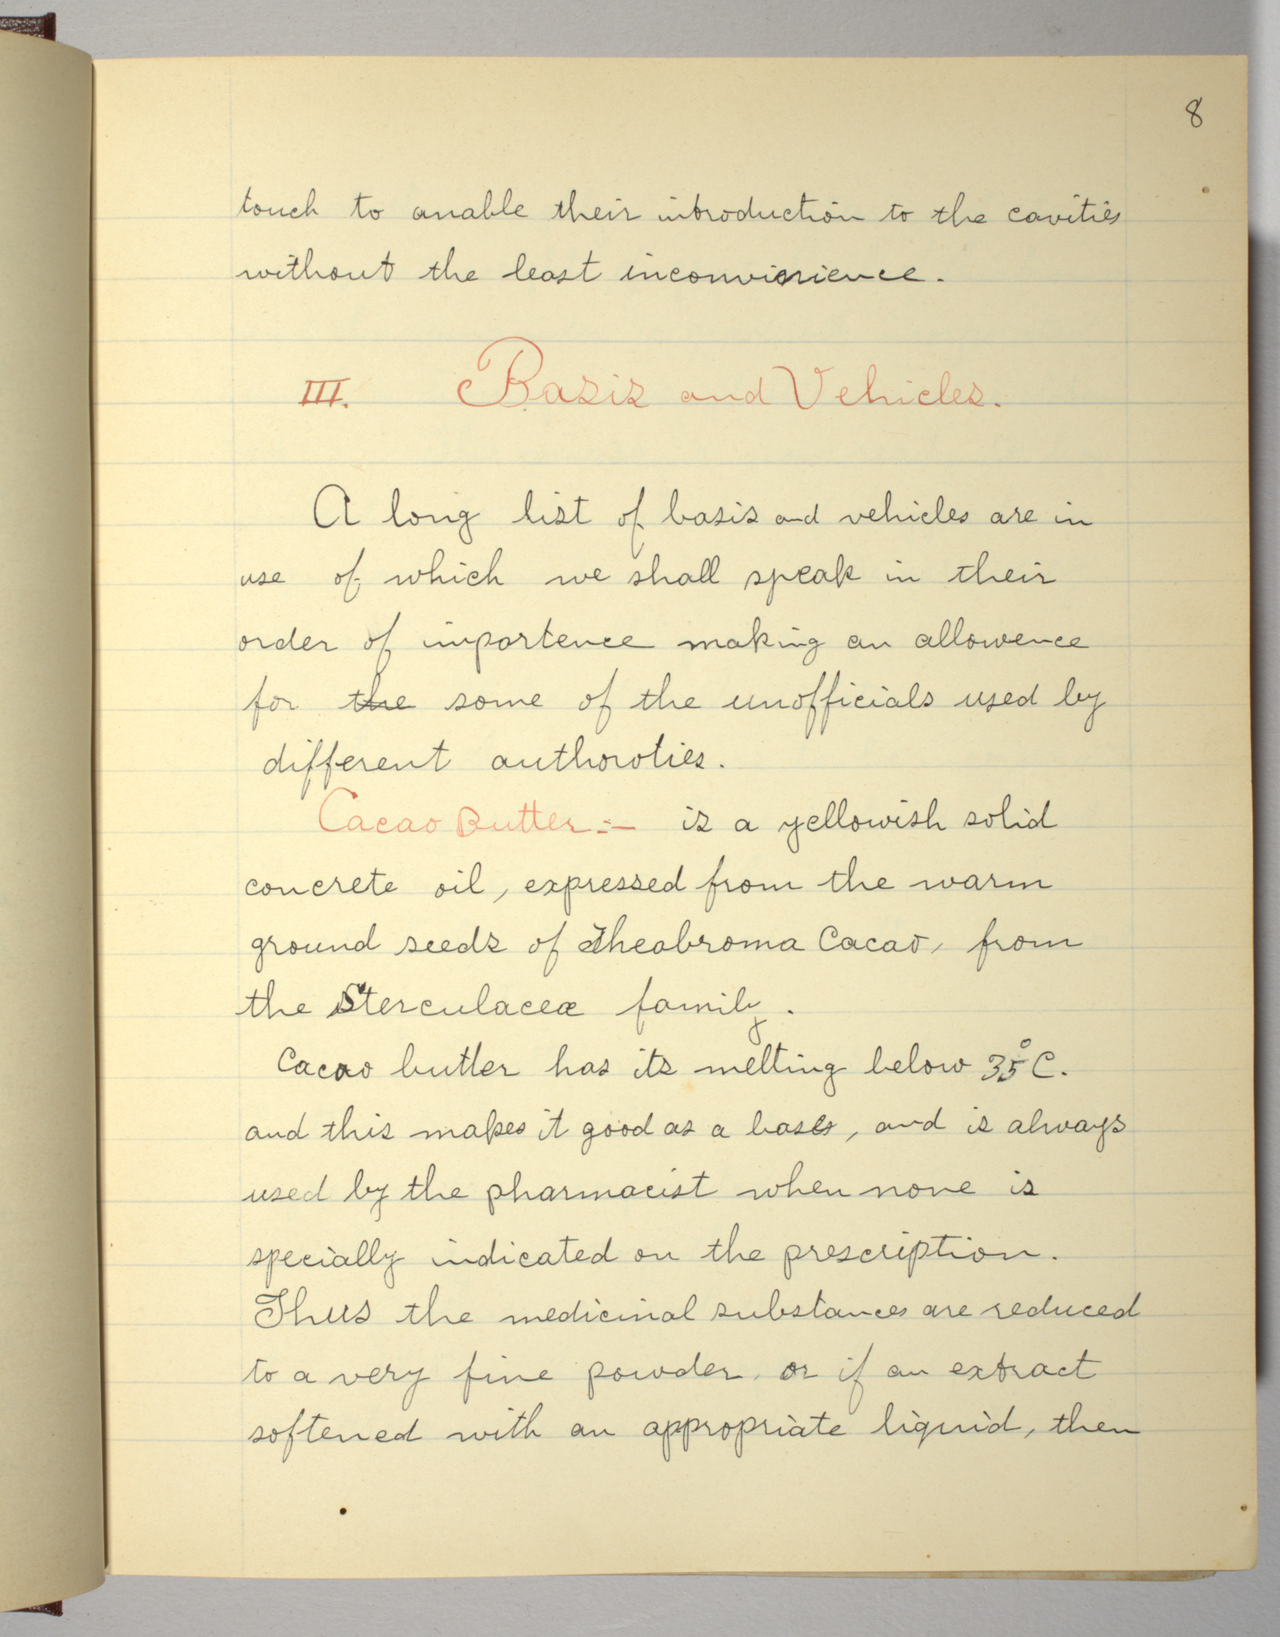 8
touch to anable their introduction to the cavities
without the least inconvinience.
III. Basis and Vehicles.
A long list of basis and vehicles are in
use of which we shall speak in their
order of importence making an allowence
for the some of the unofficials used by
different authoroties.
Cacao Butter:- is a yellowish solid
concrete oil, expressed from the warm
ground seeds of Theobroma Cacao, from
the Sterculaceæ family.
Cacao butter has its melting below 35°C.
and this makes it good as a basis, and is always
used by the pharmacist when none is
specially indicated on the prescription.
Thus the medicinal substances are reduced
to a very fine powder, or if an extract
softened with an appropriate liquid, then